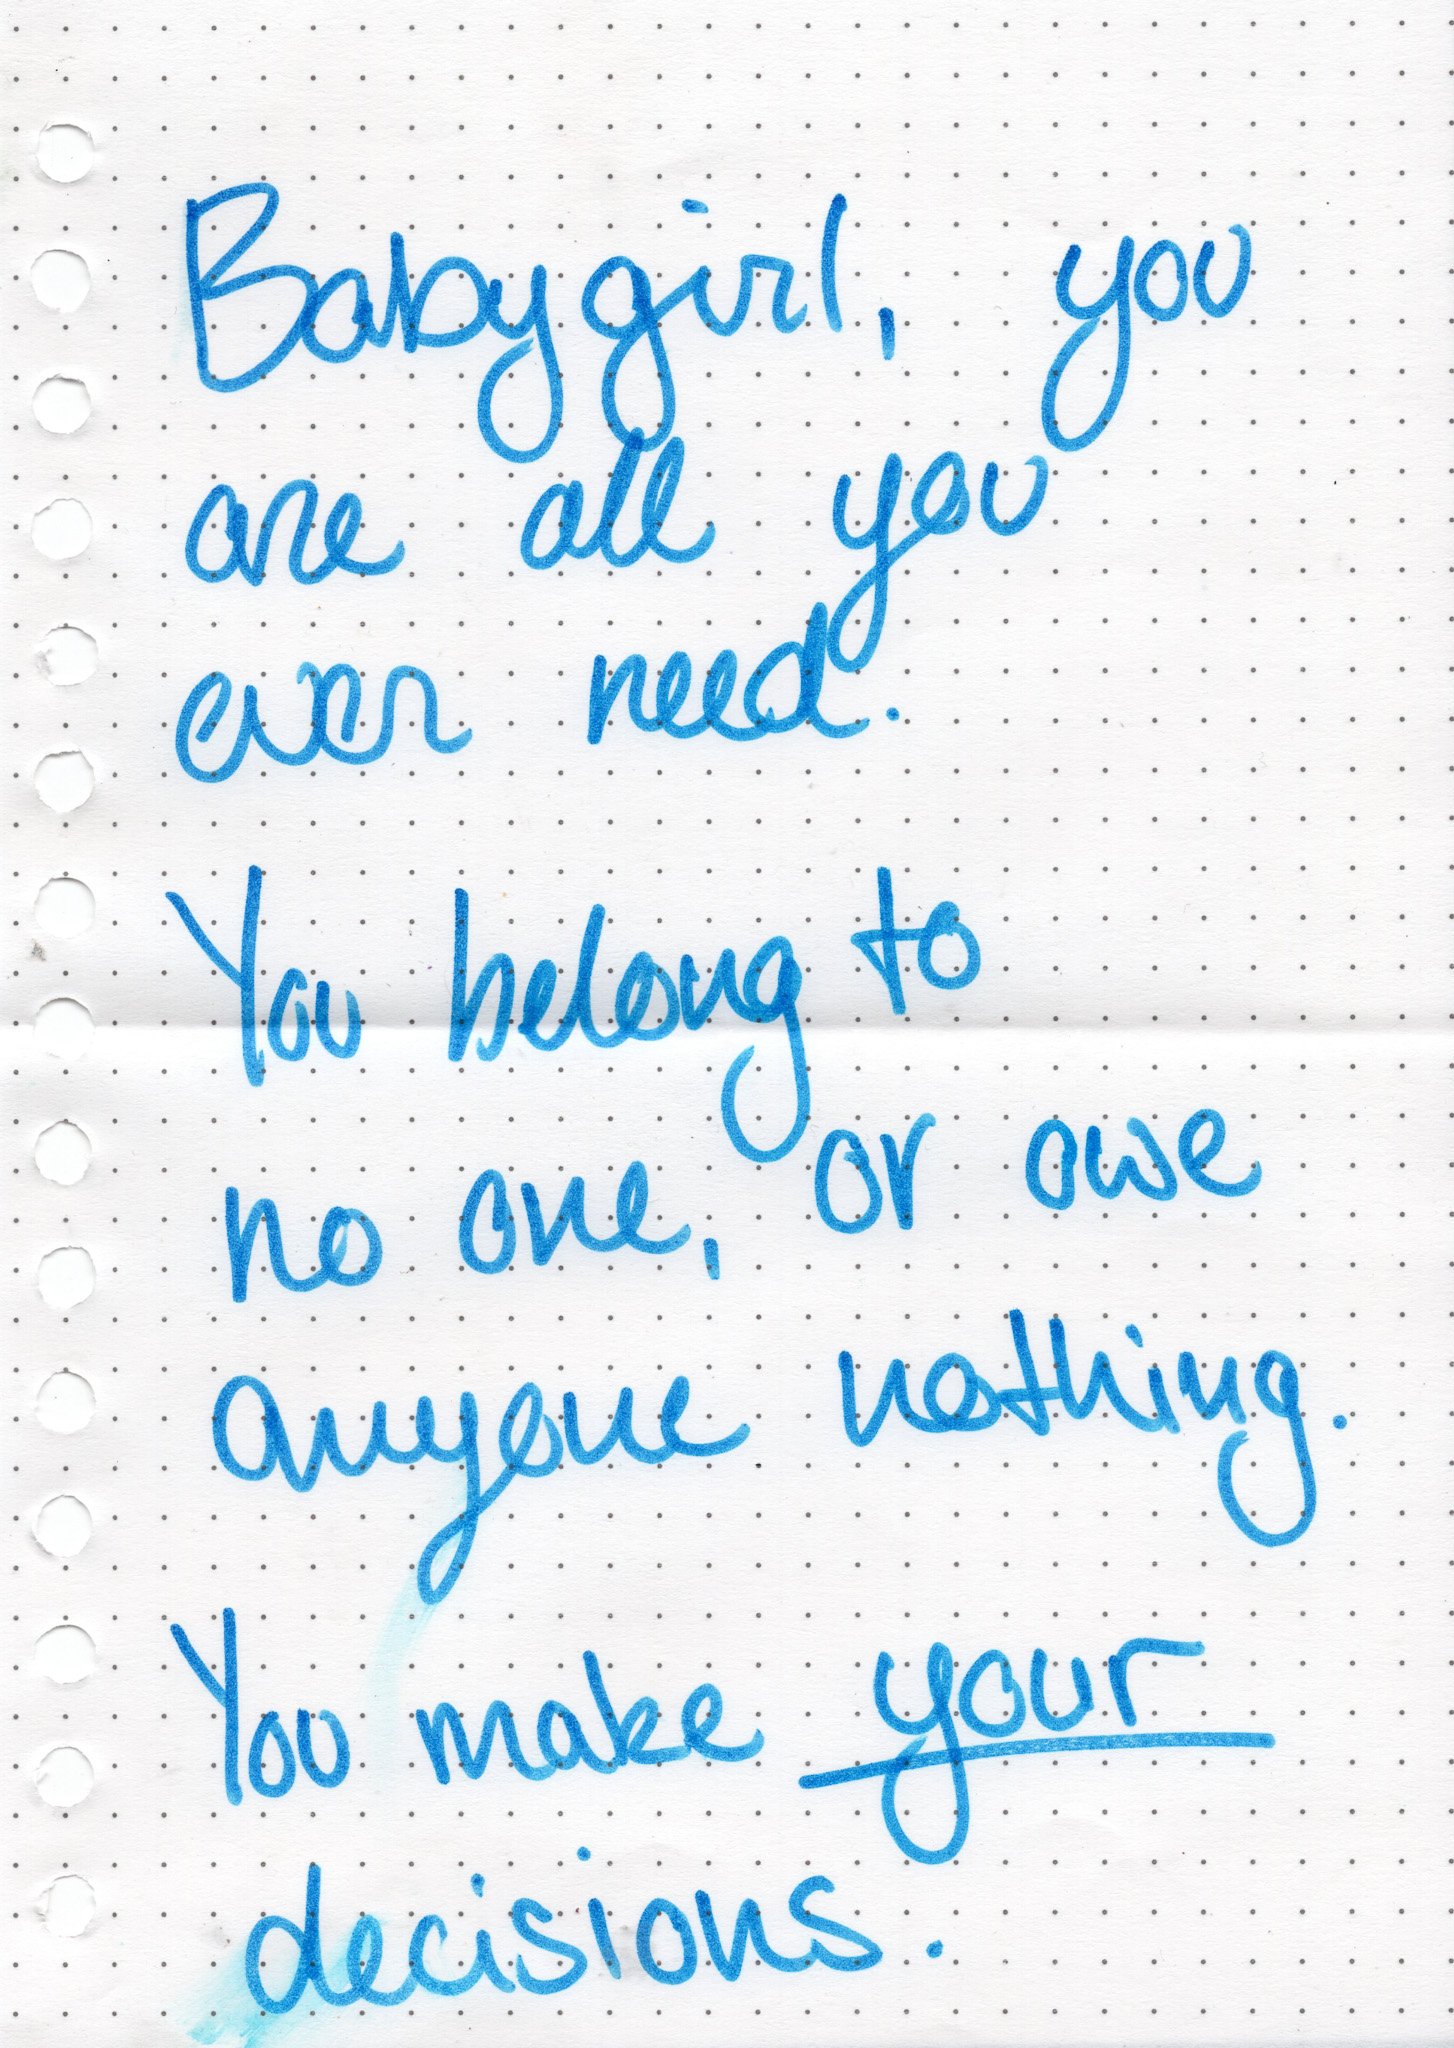 Babygirl, you
are all you
ever need.
You belong to
no one, or owe
anyone nothing.
You make your
decisions.